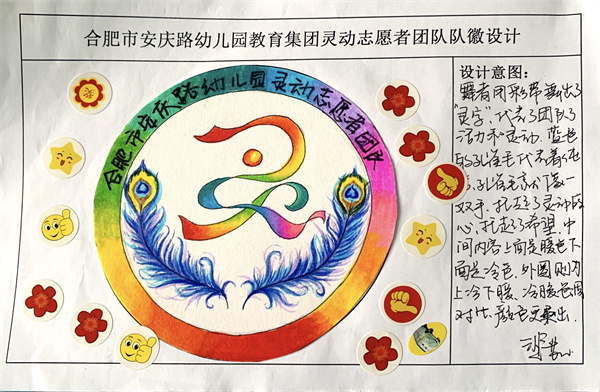 合肥市安庆路幼儿园教育集团灵动志愿者团队队徽设计
合肥市安庆路幼儿园灵动志愿者团队
奖
设计意图:
舞者用彩带舞出了
"灵字",代表了团队的
活力和灵动.蓝色
的孔雀毛代表着
孔雀毛
双手,托起了灵动的
心,托起了希望.中
间内容上面是暖色下
面是冷色.外圈则为
上冷下暖.冷暖色调
对比,颜色更突出.